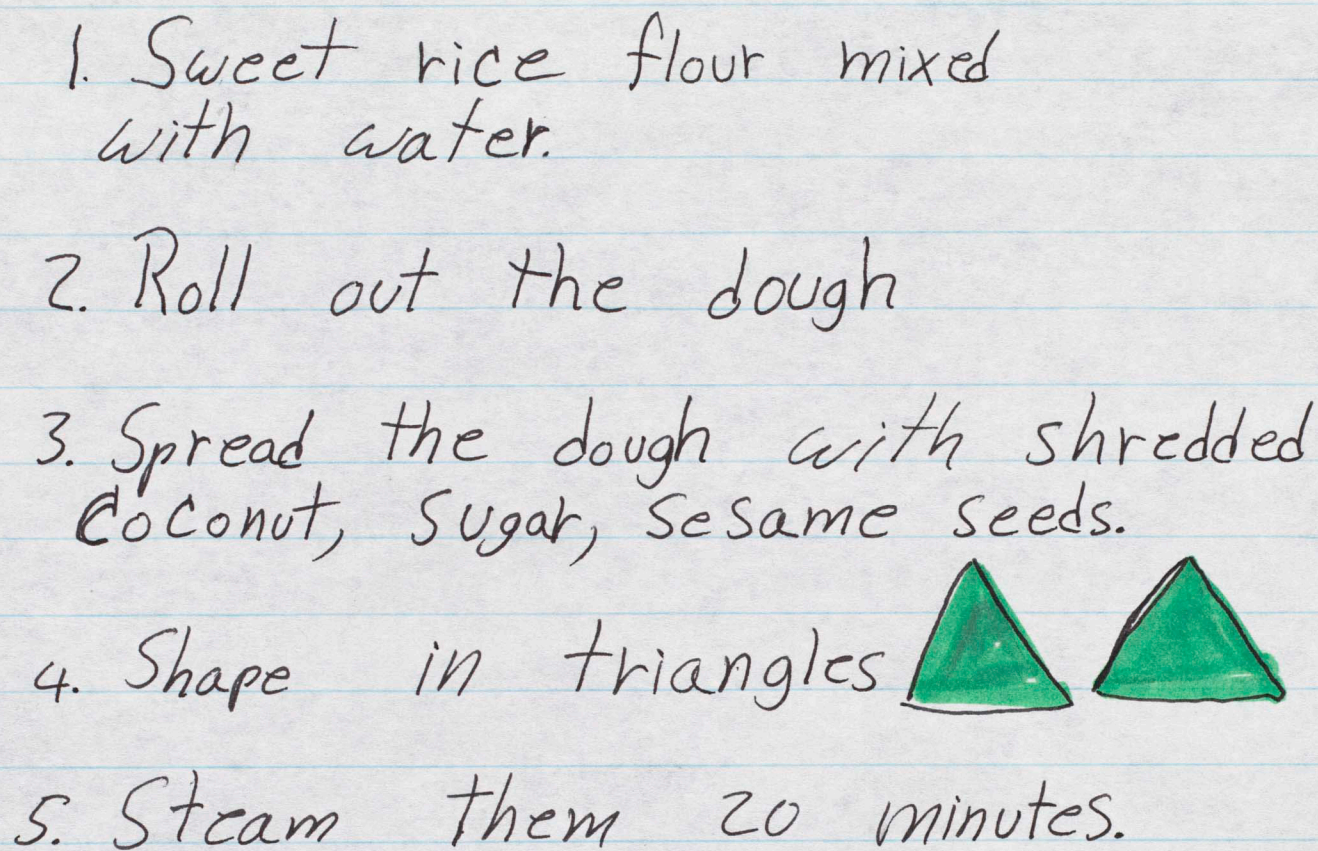 1. Sweet rice flour mixed
with water.
2. Roll out the dough
3. Spread the dough with shredded
Coconut, Sugar, Sesame seeds.
4. Shape in triangles
5. Steam them 20 minutes.